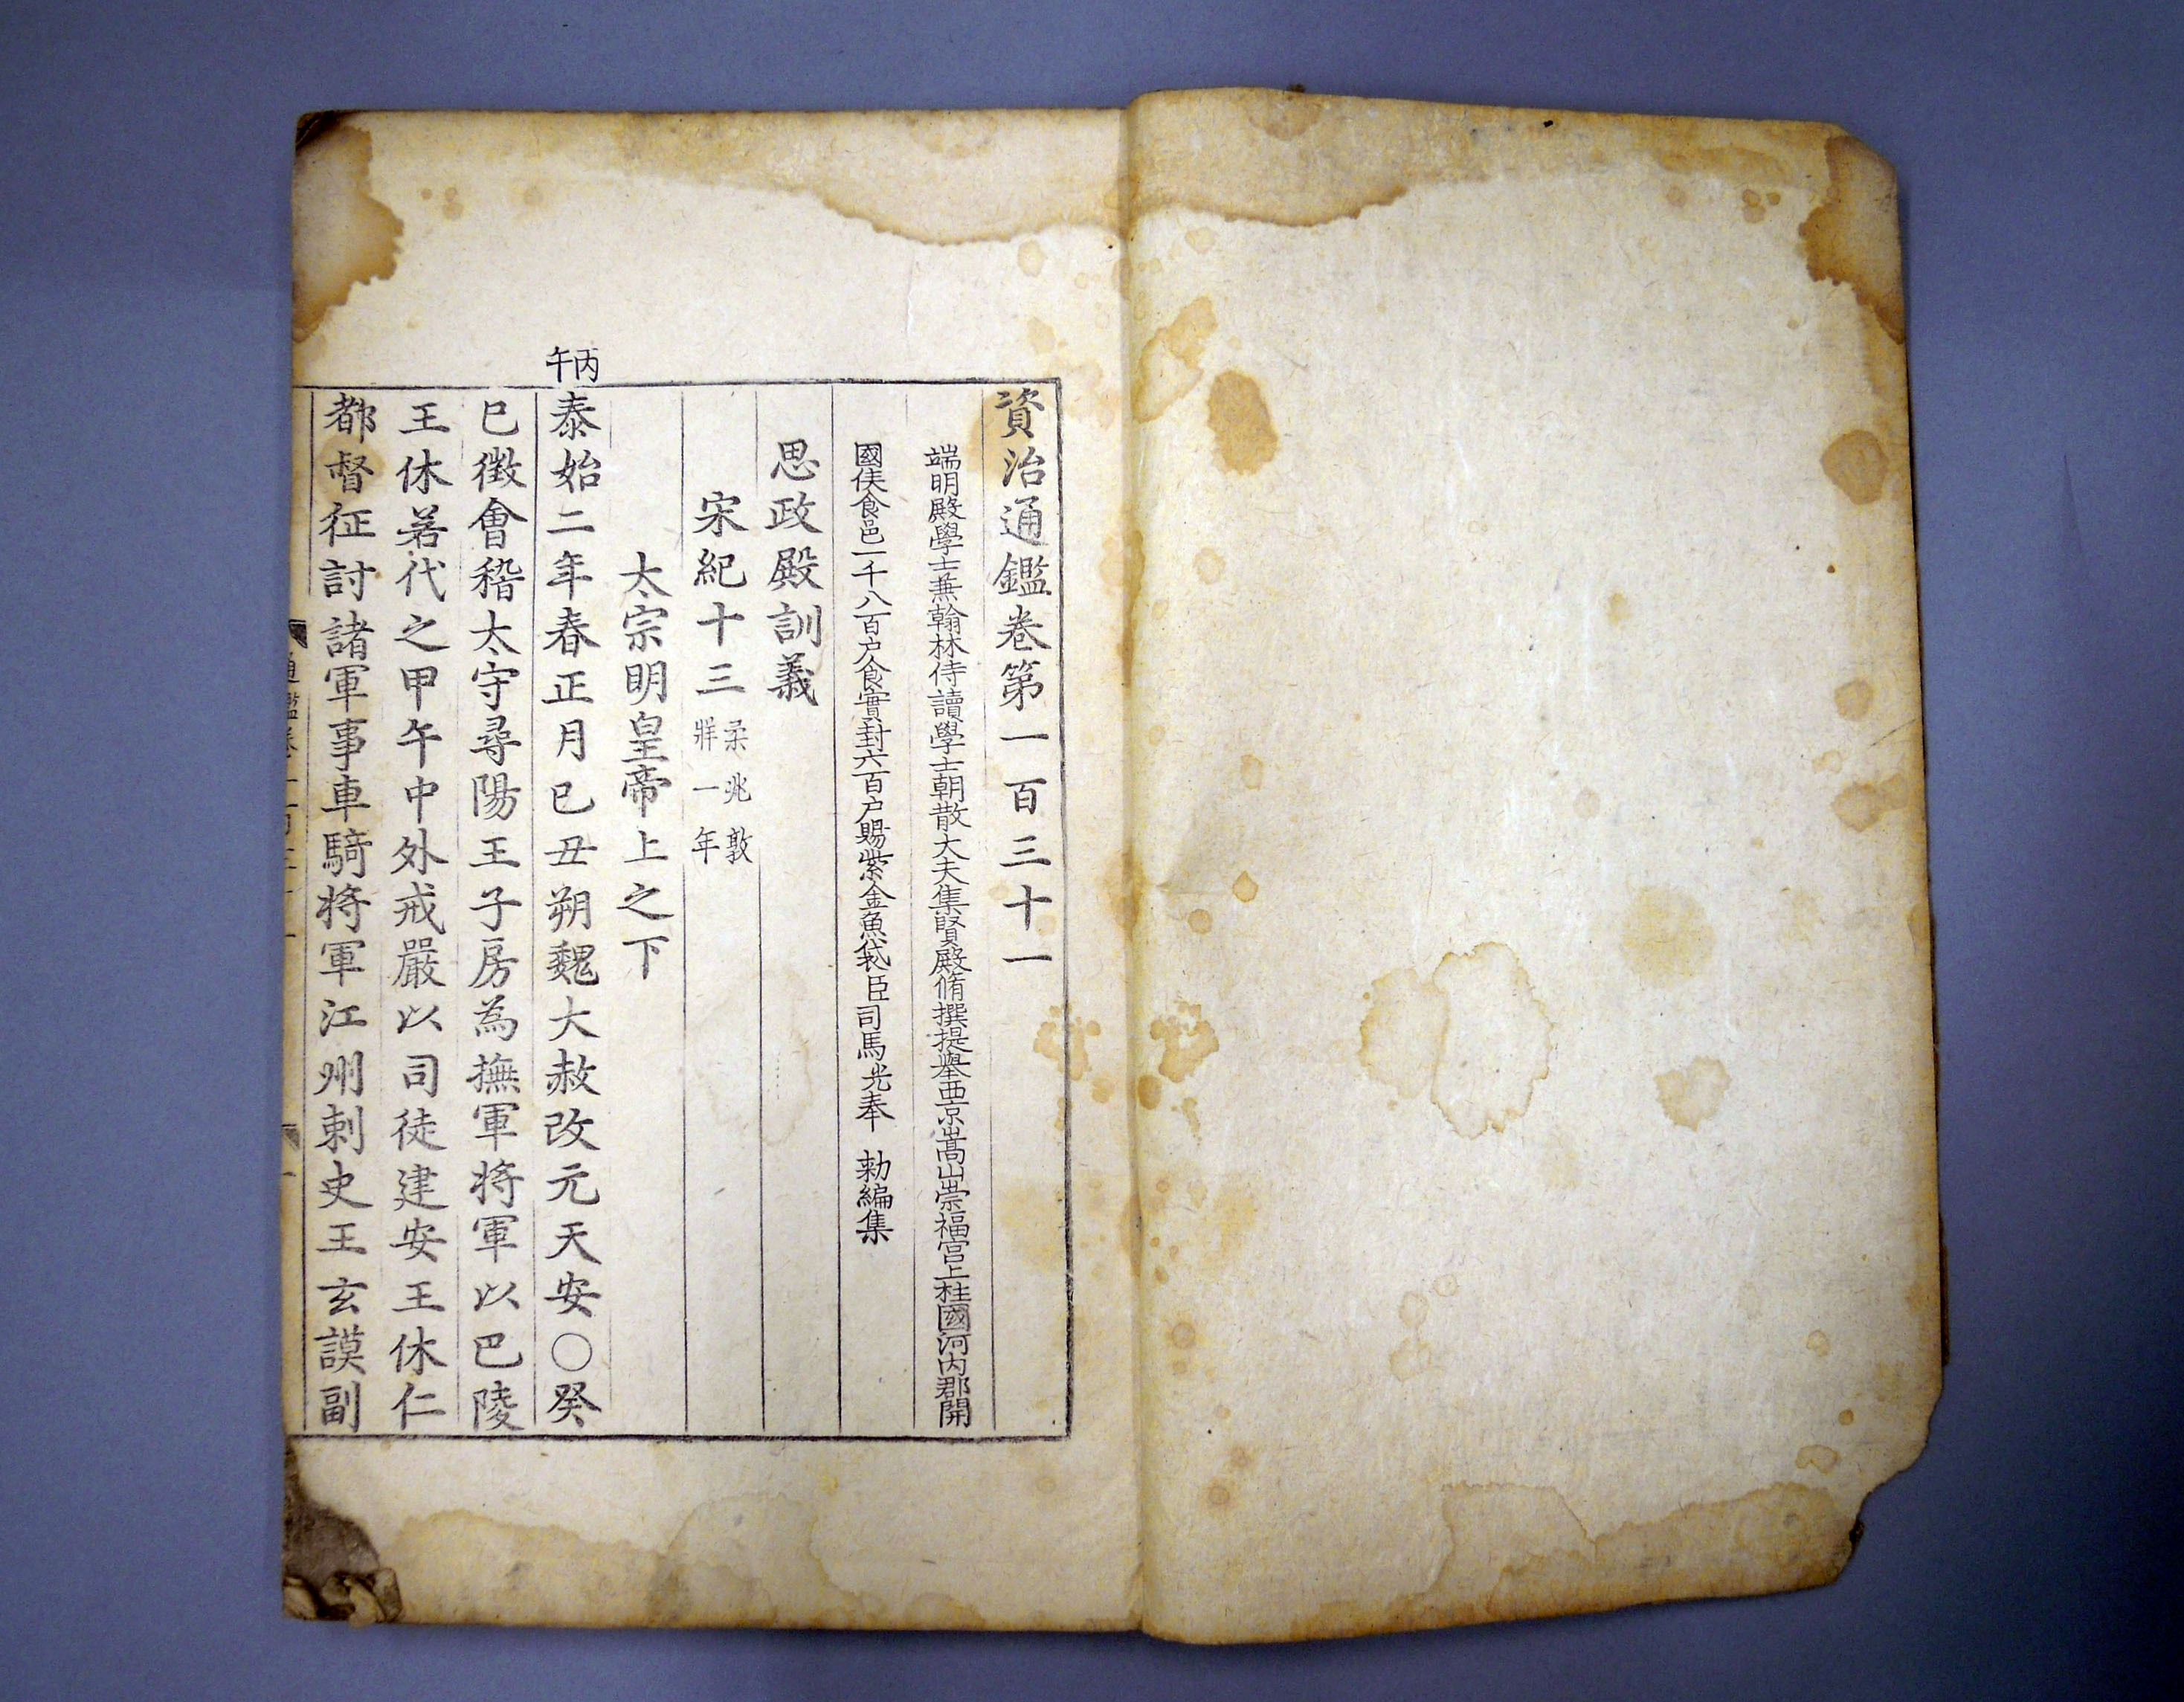 資治通鑑卷第一百三十一
端明殿學士兼翰林侍讀學士朝散大夫集賢殿脩撰提舉西京嵩山崇福宮上柱國河內郡開
國侯食邑一千八百户食實封六百户賜紫金魚袋臣司馬光奉 勑編集
思政殿訓義
宋紀十三 柔兆敦
牂一年
太宗明皇帝上之下
丙午
泰始二年春正月己丑朔魏大赦改元天安○癸
巳徵會稽太守尋陽王子房為撫軍將軍以巴陵
王休若代之甲午中外戒嚴以司徒建安王休仁
都督征討諸軍事車騎將軍江州刺史王玄謨副